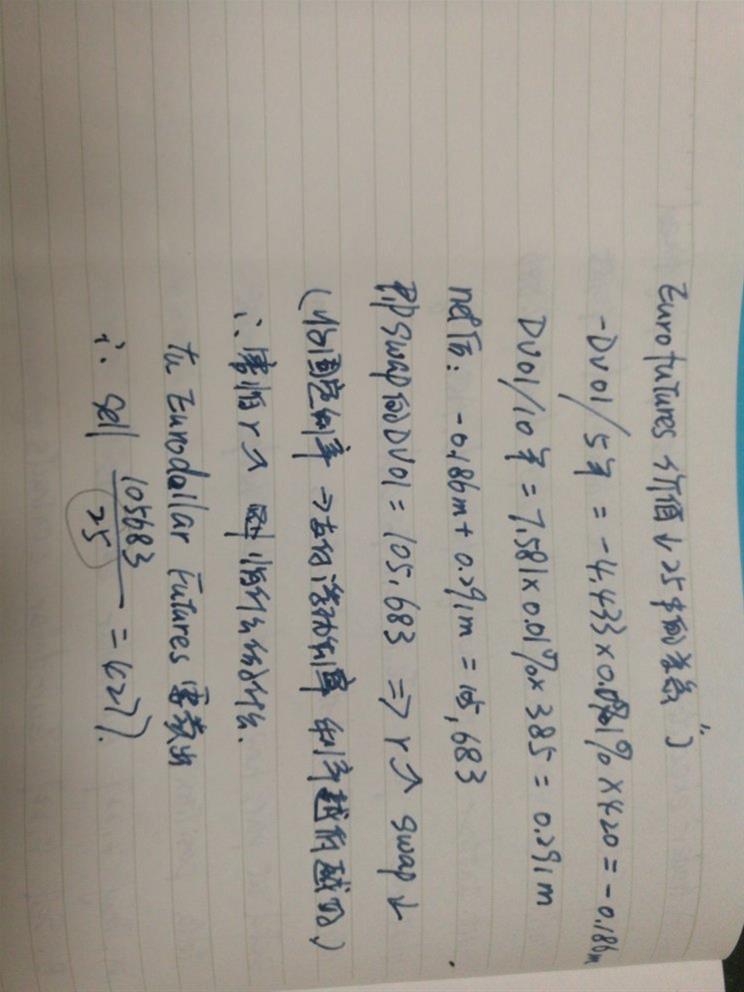 Eurofutures 价值↓25美元差急")
-DV01/5年 = -4.433×0.01%×420 = -0.186m
DV01/10年 = 7.581×0.01%×385 = 0.291m
net后: -0.186m + 0.291m = 105,683
即 swap的DV01 = 105,683 => r↗ swap↓
(收固定利率 → 支付浮动利率 利率越高越亏)
∴ 害怕r↗ 则 怕什么做什么.
在 Eurodollar Futures 要卖出
∴ sell 105683/25 = 4227.